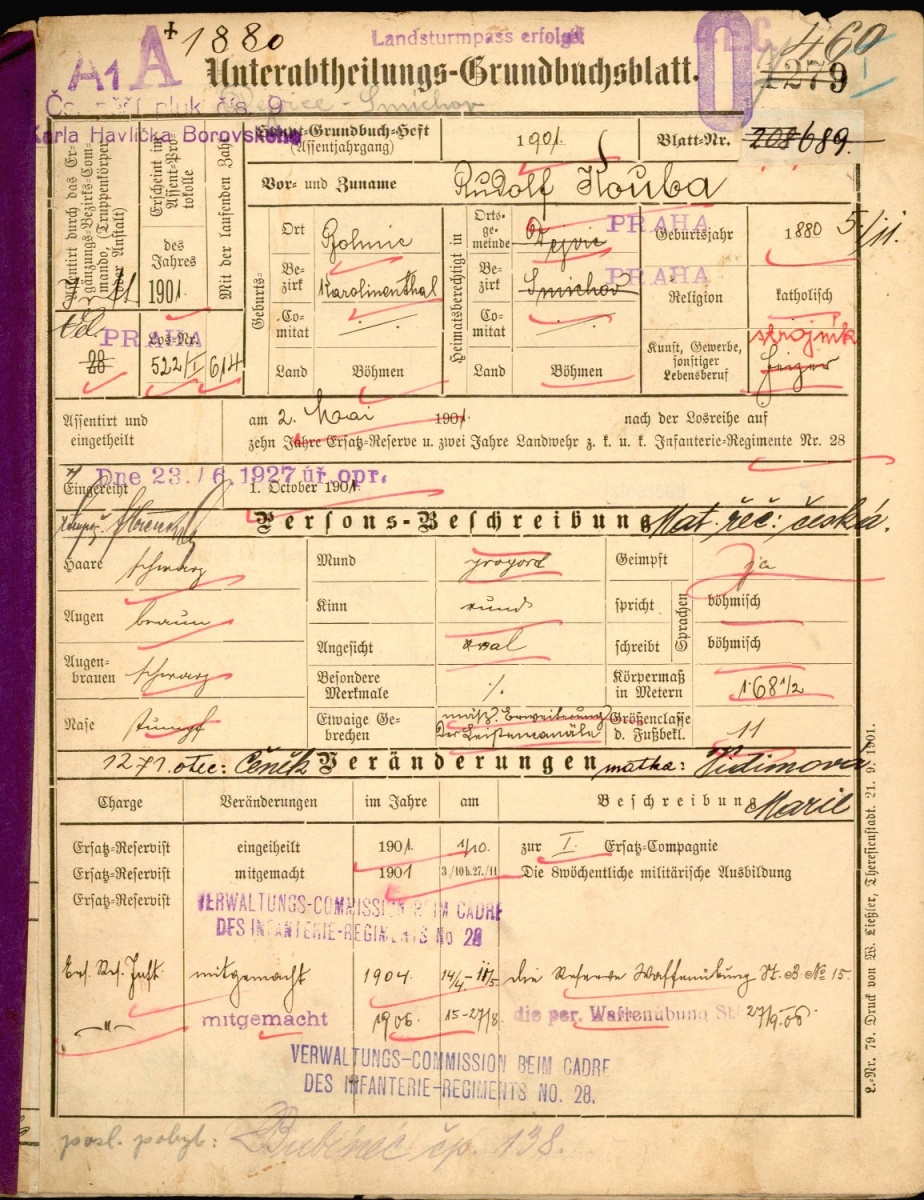 A 1880
A1
Landsturmpass erfolgt
460
1279
Unterabtheilungs-Grundbuchsblatt.
Dejvice - Smíchov
pluk čís. 9
Karla Havlíčka Borovského
Haupt-Grundbuch-Heft
(Assentjahrgang)
1901.
Blatt-Nr.
208 689.
Assentirt durch das Er-
gänzungs-Bezirks-Com-
mando, (Truppenkörper
oder Anstalt)
28
Erscheint im
Assent-Pro-
tokolle
des
Jahres
1901
Los-Nr.
522/I
Mit der laufenden Zahl
614
PRAHA
Vor- und Zuname
Rudolf Kouba
Geburts-
Ort
Bohnic
Be-
zirk
Karolinenthal
Co-
mitat
Land
Böhmen
Heimatsberechtigt in
Orts-
ge-
meinde
Dejvic
PRAHA
Be-
zirk
Smichov
PRAHA
Co-
mitat
Land
Böhmen
Geburtsjahr
1880 5/11.
Religion
katholisch
Kunst, Gewerbe,
sonstiger
Lebensberuf
strojník
Heizer
Assentirt und
eingetheilt
am 2. Mai 1901 nach der Losreihe auf
zehn Jahre Ersatz-Reserve u. zwei Jahre Landwehr z. k. u. k. Infanterie-Regimente Nr. 28
Dne 23./6. 1927 úř. opr.
Eingereiht
1. October 1901
Persons-Beschreibung
Mat. řeč: česká.
Haare
schwarz
Mund
proport
Geimpft
ja
Augen
braun
Kinn
rund
spricht
Sprachen
böhmisch
Angesicht
oval
schreibt
böhmisch
Augen-
brauen
schwarz
Besondere
Merkmale
./.
Körpermaß
in Metern
1·68 1/2
Nase
stumpf
Etwaige Ge-
brechen
mäß. Erweiterung
der Leistenanäle
Größenclasse
d. Fußbekl.
11
1271. otec: Čeněk
Veränderungen
matka:
Marie
Charge
Veränderungen
im Jahre
am
Beschreibung
Ersatz-Reservist eingetheilt 1901. 1/10 zur I. Ersatz-Compagnie
Ersatz-Reservist mitgemacht 1901 3/10 b. 27./11 Die 8wöchentliche militärische Ausbildung
Ersatz-Reservist
VERWALTUNGS-COMMISSION BEIM CADRE
DES INFANTERIE-REGIMENTS No 28
Ers. Res. Inft mitgemacht 1904 14/4-11/5 die Reserve Waffenübung St. B. No 15.
-"- mitgemacht 1906 15-27/8 die per. Waffenübung St. 27/9.06.
VERWALTUNGS-COMMISSION BEIM CADRE
DES INFANTERIE-REGIMENTS NO. 28.
posl. pobyt: Bubeneč čp. 138.
L.-Nr. 79. Druck von W. Ließler, Theresienstadt. 21. 9. 1901.